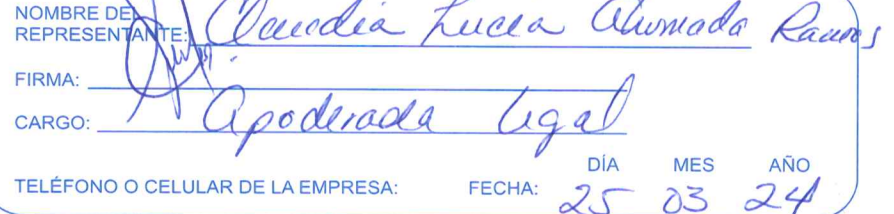 NOMBRE DEL
REPRESENTANTE: Claudia Lucia Ahumada Ramos
FIRMA:
CARGO: Apoderada Legal
DÍA MES AÑO
TELÉFONO O CELULAR DE LA EMPRESA: FECHA: 25 03 24